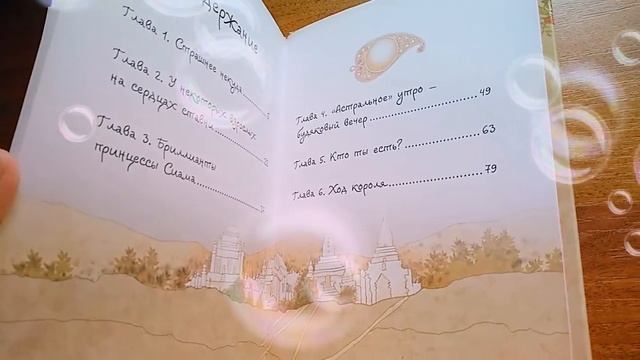 держание
Глава 1. Страшнее некуда
Глава 2. У некоторых взрослых
на сердцах ставни
Глава 3. Бриллианты
принцессы Сиама
Глава 4. «Астральное» утро –
будяковый вечер 49
Глава 5. Кто ты есть? 63
Глава 6. Ход короля 79